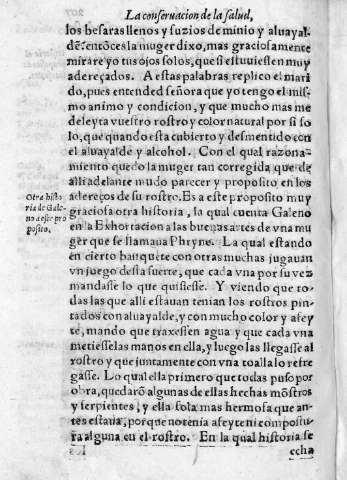 La conseruacion de la salud,
los besaras llenos y suzios de minio y aluayal-
de? entōces la muger dixo, mas graciosamente
mirare yo tus ojos solos, que si estuuiessen muy
adereçados. A estas palabras replico el mari
do, pues entended señora que yo tengo el mis-
mo animo y condicion, y que mucho mas me
deleyta vuestro rostro y color natural por si so
lo, que quando esta cubierto y desmentido con
el aluayalde y alcohol. Con el qual razona-
miento quedo la muger tan corregida que de
alli adelante mudo parecer y proposito en los
adereços de su rostro. Es a este proposito muy
graciosa otra historia, la qual cuenta Galeno
en la Exhortacion a las buenas artes de vna mu
ger que se llamaua Phryne. La qual estando
en cierto banquete con otras muchas jugauan
vn juego desta suerte, que cada vna por su vez
mandasse lo que quisiesse. Y viendo que to-
das las que alli estauan tenian los rostros pin-
tados con aluayalde, y con mucho color y afey
te, mando que traxessen agua y que cada vna
metiesse las manos en ella, y luego las llegasse al
rostro y que juntamente con vna toalla lo refre
gasse. Lo qual ella primero que todas puso por
obra, quedarō algunas de ellas hechas mōstros
y serpientes, y ella sola mas hermosa que an-
tes estaua, porque no tenia afeyte ni compostu
ra alguna en el rostro. En la qual historia se
echa
Otra histo
ria de Gale-
no a este pro
posito.